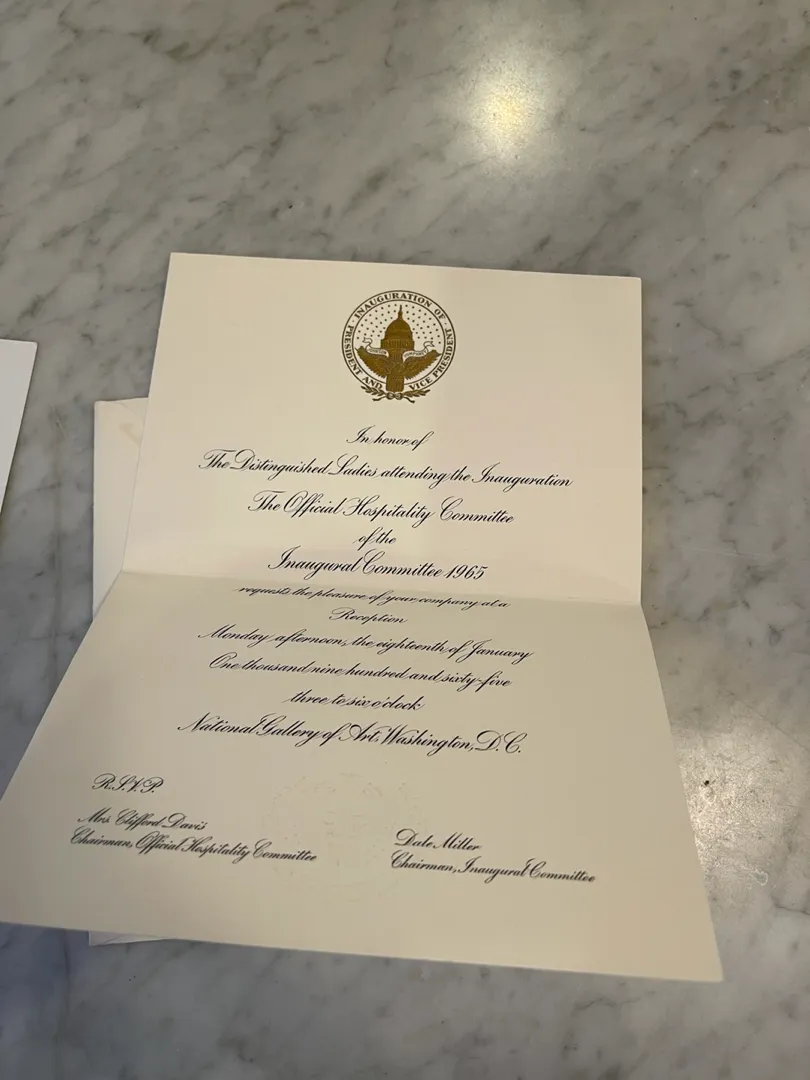 INAUGURATION OF
PRESIDENT AND VICE PRESIDENT
In honor of
The Distinguished Ladies attending the Inauguration
The Official Hospitality Committee
of the
Inaugural Committee 1965
requests the pleasure of your company at a
Reception
Monday afternoon, the eighteenth of January
One thousand nine hundred and sixty-five
three to six o'clock
National Gallery of Art, Washington, D.C.
R.S.V.P.
Mrs. Clifford Davis
Chairman, Official Hospitality Committee
Dale Miller
Chairman, Inaugural Committee